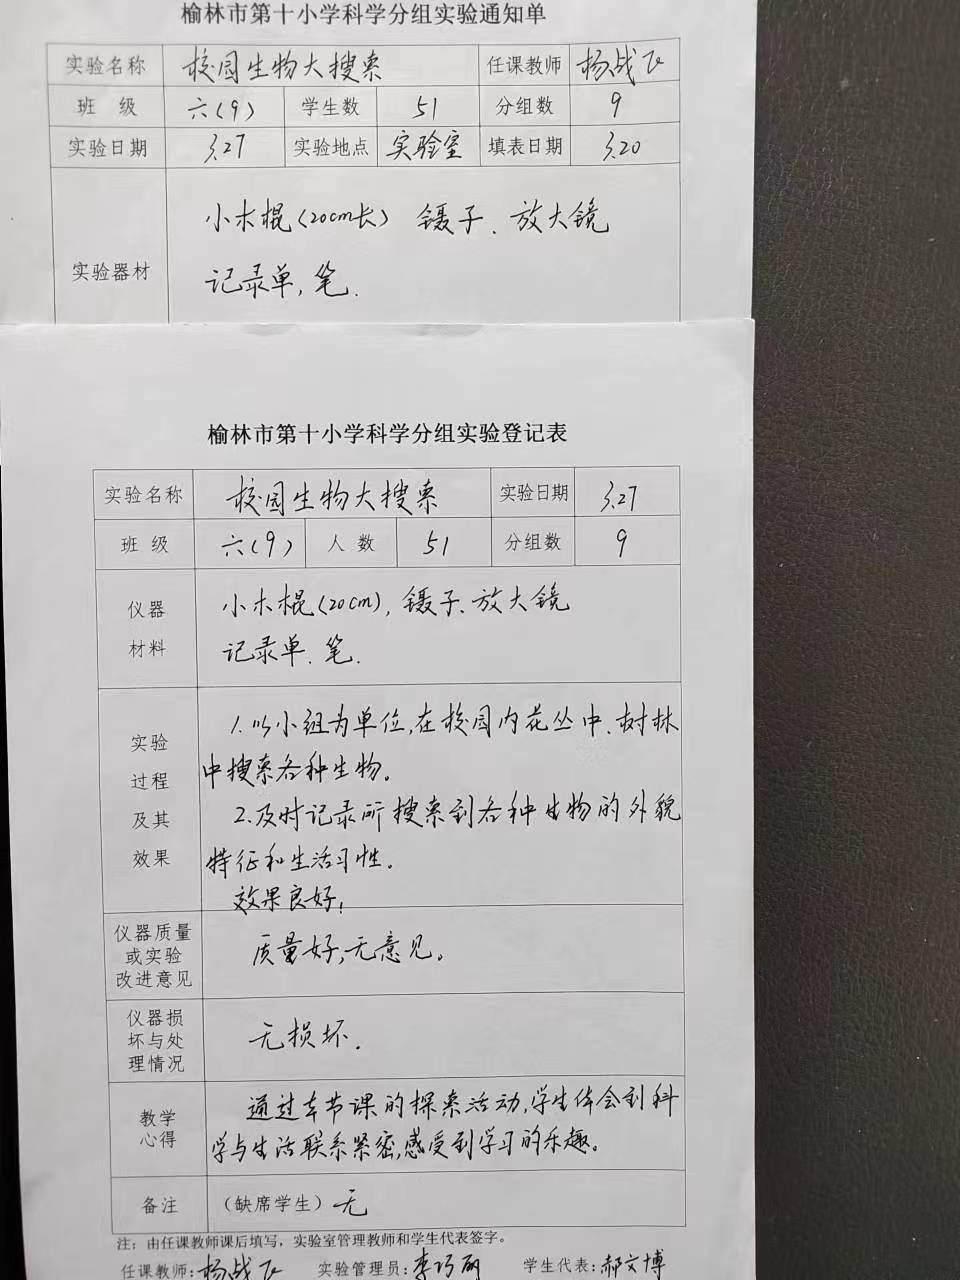 榆林市第十小学科学分组实验通知单
实验名称 校园生物大搜索 任课教师 杨战飞
班 级 六(9) 学生数 51 分组数 9
实验日期 3.27 实验地点 实验室 填表日期 3.20
小木棍(20cm长) 镊子、放大镜
实验器材
记录单,笔.
榆林市第十小学科学分组实验登记表
实验名称 校园生物大搜索 实验日期 3.27
班 级 六(9) 人 数 51 分组数 9
仪器 小木棍(20cm),镊子、放大镜
材料 记录单、笔.
1.以小组为单位,在校园内花丛中、树林
实验
中搜索各种生物。
过程
2.及时记录所搜索到各种生物的外貌
及其
特征和生活习性。
效果
效果良好!
仪器质量
或实验 质量好,无意见。
改进意见
仪器损
坏与处 无损坏.
理情况
通过本节课的探索活动,学生体会到科
教学
心得 学与生活联系紧密,感受到学习的乐趣。
备注 (缺席学生) 无
注:由任课教师课后填写,实验室管理教师和学生代表签字。
任课教师:杨战飞 实验管理员:李巧丽 学生代表:郝文博